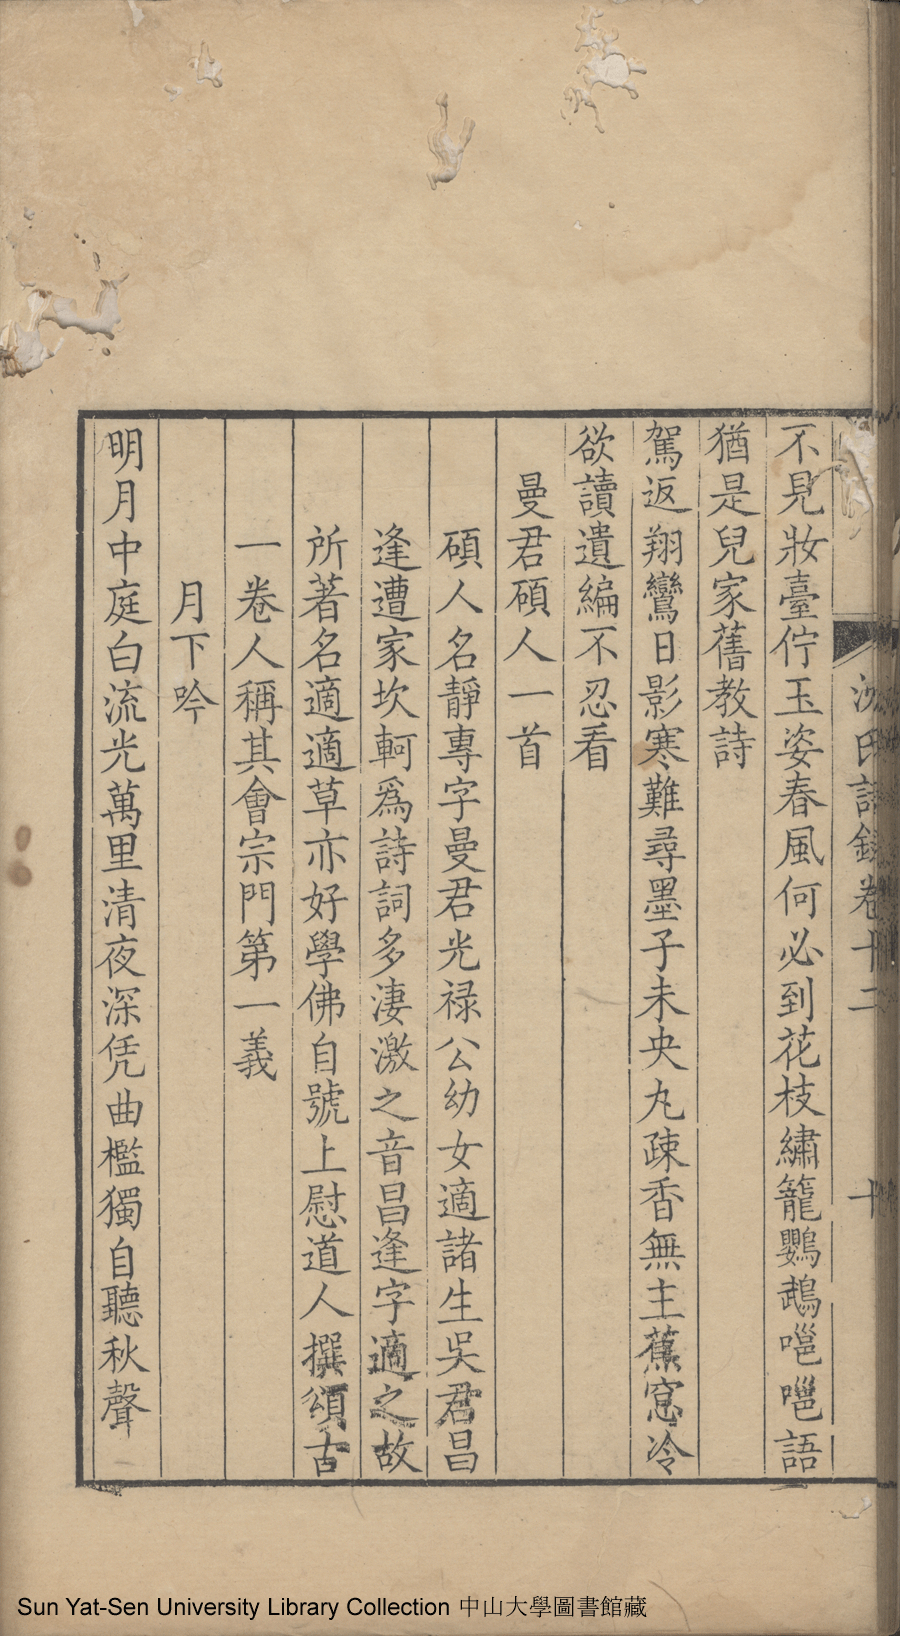 沈氏詩錄卷十二 十
不見妝臺佇玉姿春風何必到花枝繡籠鸚鵡嗈嗈語
猶是兒家舊教詩
駕返翔鸞日影寒難尋墨子未央丸疎香無主蕉窓冷
欲讀遺編不忍看
曼君碩人一首
碩人名靜專字曼君光祿公幼女適諸生吳君昌
逢遭家坎軻爲詩詞多淒激之音昌逢字適之故
所著名適適草亦好學佛自號上慰道人撰頌古
一卷人稱其會宗門第一義
月下吟
明月中庭白流光萬里清夜深凭曲檻獨自聽秋聲
Sun Yat-Sen University Library Collection 中山大學圖書館藏